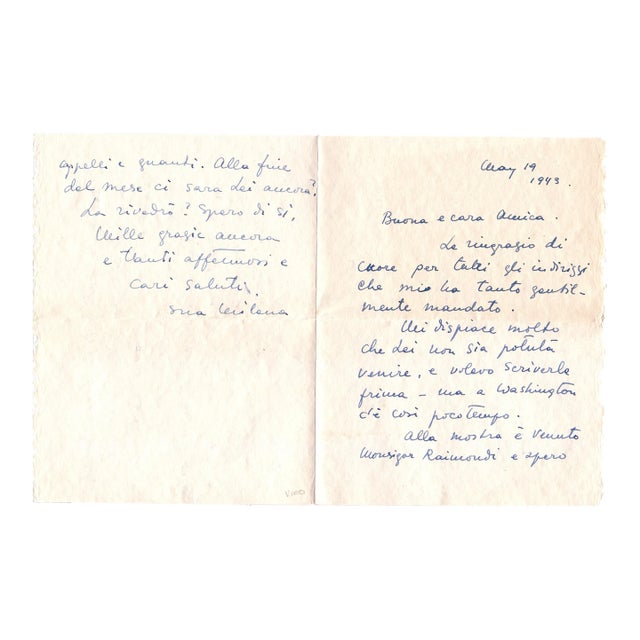 May 19
1943.
Buona e cara Amica.
Le ringrazio di
cuore per tutti gli indirizzi
che mi ha tanto gentil-
mente mandato.
Mi dispiace molto
che Lei non sia potuta
venire, e volevo scriverla
prima – ma a Washington
c'è così poco tempo.
Alla mostra è venuto
Monsignor Raimondi e spero
cappelli e guanti. Alla fine
del mese ci sara Lei ancora?
La rivedrò? Spero di si,
Mille grazie ancora
e tanti affettuosi e
cari saluti.
sua Milana